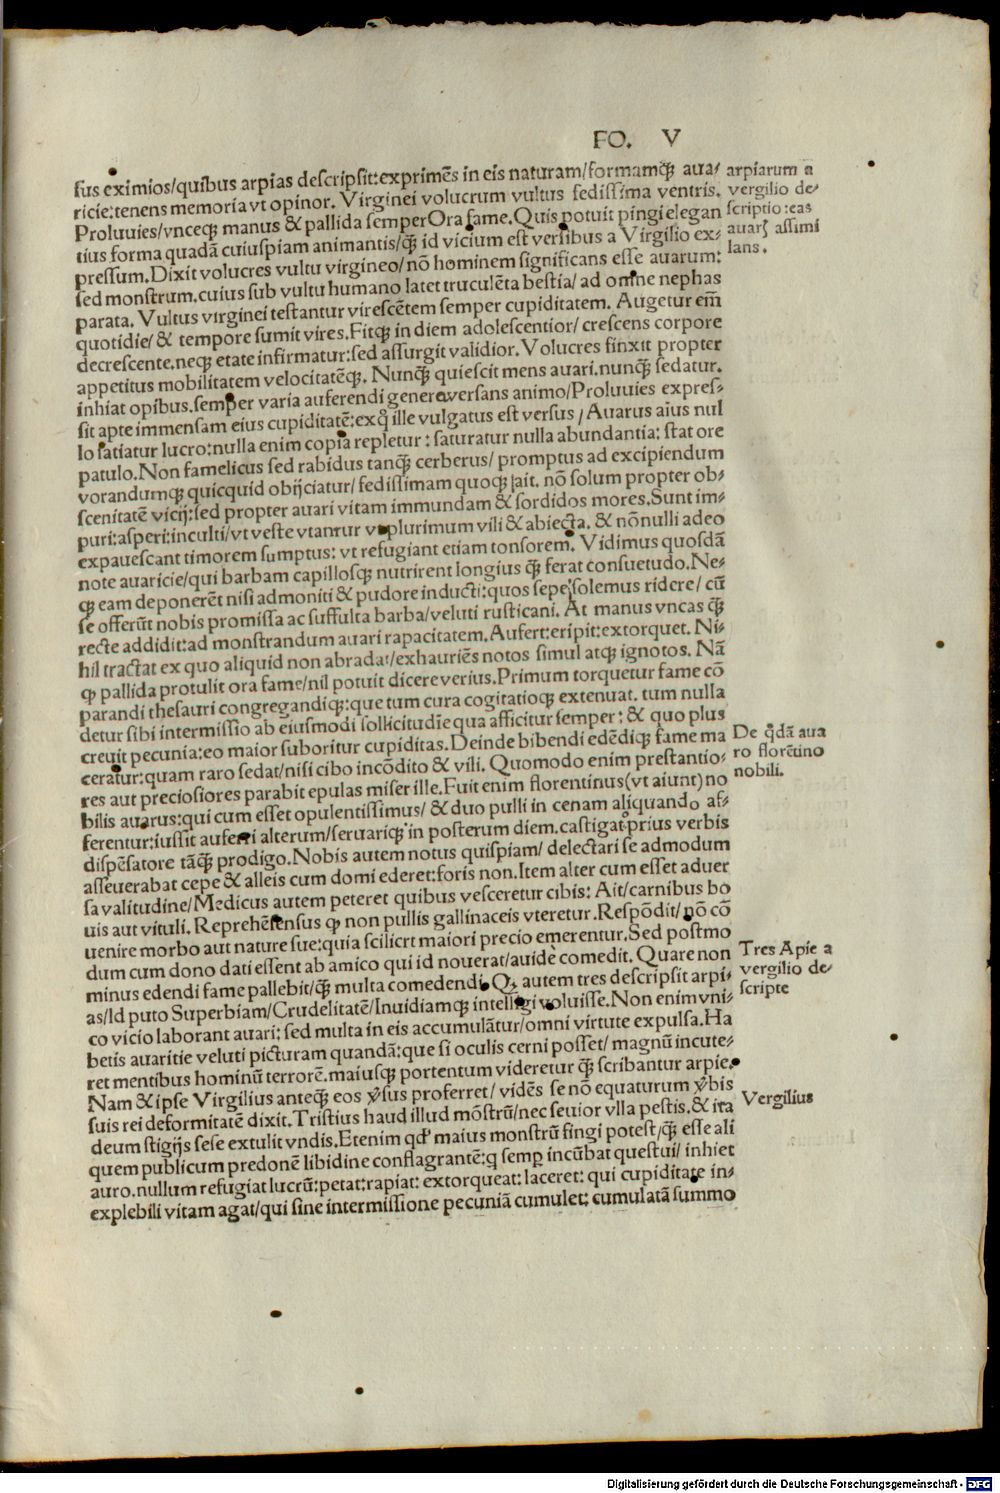 FO. V
sus eximios/quibus arpias descripsit:exprimēs in eis naturam/formamqꝫ aua⸗
ricie:tenens memoria vt opinor. Virginei volucrum vultus fedissima ventris.
Proluuies/vnceqꝫ manus & pallida semper Ora fame. Quis potuit pingi elegan
tius forma quadā cuiuspiam animantis/qꝫ̄ id vicium est versibus a Virgilio ex⸗
pressum. Dixit volucres vultu virgineo/nō hominem significans esse auarum:
sed monstrum.cuius sub vultu humano latet truculēta bestia/ ad omne nephas
parata. Vultus virginei testantur virescētem semper cupiditatem. Augetur em̄
quotidie/ & tempore sumit vires. Fitqꝫ in diem adolescentior/ crescens corpore
decrescente.neqꝫ etate infirmatur:sed assurgit validior. Volucres finxit propter
appetitus mobilitatem velocitatēqꝫ. Nunqꝫ̄ quiescit mens auari.nunqꝫ̄ sedatur.
inhiat opibus.semper varia auferendi genera versans animo/Proluuies expres⸗
sit apte immensam eius cupiditatē:exqͦ ille vulgatus est versus / Auarus aius nul
lo satiatur lucro:nulla enim copia repletur : saturatur nulla abundantia: stat ore
patulo. Non famelicus sed rabidus tanqꝫ̄ cerberus/ promptus ad excipiendum
vorandumqꝫ quicquid obijciatur/ fedissimam quoqꝫ ait. nō solum propter ob⸗
scenitatē vicij:sed propter auari vitam immundam & sordidos mores. Sunt im⸗
puri:asperi:inculti/vt veste vtantur vt plurimum vili & abiecta. & nōnulli adeo
expauescant timorem sumptus: vt refugiant etiam tonsorem. Vidimus quosdā
note auaricie/qui barbam capillosqꝫ nutrirent longius qꝫ̄ ferat consuetudo. Ne⸗
qꝫ eam deponerēt nisi admoniti & pudore inducti:quos sepe solemus ridere/ cū
se offerūt nobis promissa ac suffulta barba/veluti rusticani. At manus vncas qꝫ̄
recte addidit:ad monstrandum auari rapacitatem. Aufert:eripit:extorquet. Ni⸗
hil tractat ex quo aliquid non abradat/exhauriēs notos simul atqꝫ ignotos. Nā
ꝙ pallida protulit ora fame/nil potuit dicere verius. Primum torquetur fame cō
parandi thesauri congregandiqꝫ:que tum cura cogitatioqꝫ extenuat. tum nulla
detur sibi intermissio ab eiusmodi sollicitudīe qua afficitur semper: & quo plus
creuit pecunia:eo maior suboritur cupiditas. Deinde bibendi edēdiqꝫ fame ma
ceratur:quam raro sedat/nisi cibo incōdito & vili. Quomodo enim prestantio⸗
res aut preciosiores parabit epulas miser ille. Fuit enim florentinus(vt aiunt)no
bilis auarus:qui cum esset opulentissimus/ & duo pulli in cenam aliquando af⸗
ferentur:iussit auferri alterum/seruariqꝫ in posterum diem.castigatͦ prius verbis
dispēsatore tāqꝫ̄ prodigo. Nobis autem notus quispiam/ delectari se admodum
asseuerabat cepe & alleis cum domi ederet:foris non. Item alter cum esset aduer
sa valitudine/Medicus autem peteret quibus vesceretur cibis: Ait/carnibus bo
uis aut vituli. Reprehēsus ꝙ non pullis gallinaceis vteretur. Respōdit/ nō cō
uenire morbo aut nature sue:quia scilicrt maiori precio emerentur. Sed postmo
dum cum dono dati essent ab amico qui id nouerat/auide comedit. Quare non
minus edendi fame pallebit/qꝫ̄ multa comedendi. Qꝫ autem tres descripsit arpi⸗
as/Id puto Superbiam/Crudelitatē/Inuidiamqꝫ intelligi voluisse. Non enim vni⸗
co vicio laborant auari: sed multa in eis accumulātur/omni virtute expulsa. Ha
betis auaritie veluti picturam quandā:que si oculis cerni posset/ magnū incute⸗
ret mentibus hominū terrorē.maiusqꝫ portentum videretur qꝫ̄ scribantur arpie.
Nam & ipse Virgilius anteqꝫ̄ eos v̓sus proferret/ vidēs se nō equaturum v̓bis
suis rei deformitatē dixit. Tristius haud illud mōstrū/nec seuior vlla pestis. & ira
deum stigijs sese extulit vndis. Etenim qd̓ maius monstrū fingi potest/qꝫ̄ esse ali
quem publicum predonē libidine conflagrantē:q semꝑ incūbat questui/ inhiet
auro.nullum refugiat lucrū:petat:rapiat: extorqueat: laceret: qui cupiditate in⸗
explebili vitam agat/qui sine intermissione pecuniā cumulet: cumulatā summo
arpiarum a
vergilio de⸗
scriptio:eas
auarꝭ assimi
lans.
De qͦdā aua
ro florētino
nobili.
Tres Apie a
vergilio de⸗
scripte
Vergilius
Digitalisierung gefördert durch die Deutsche Forschungsgemeinschaft - DFG